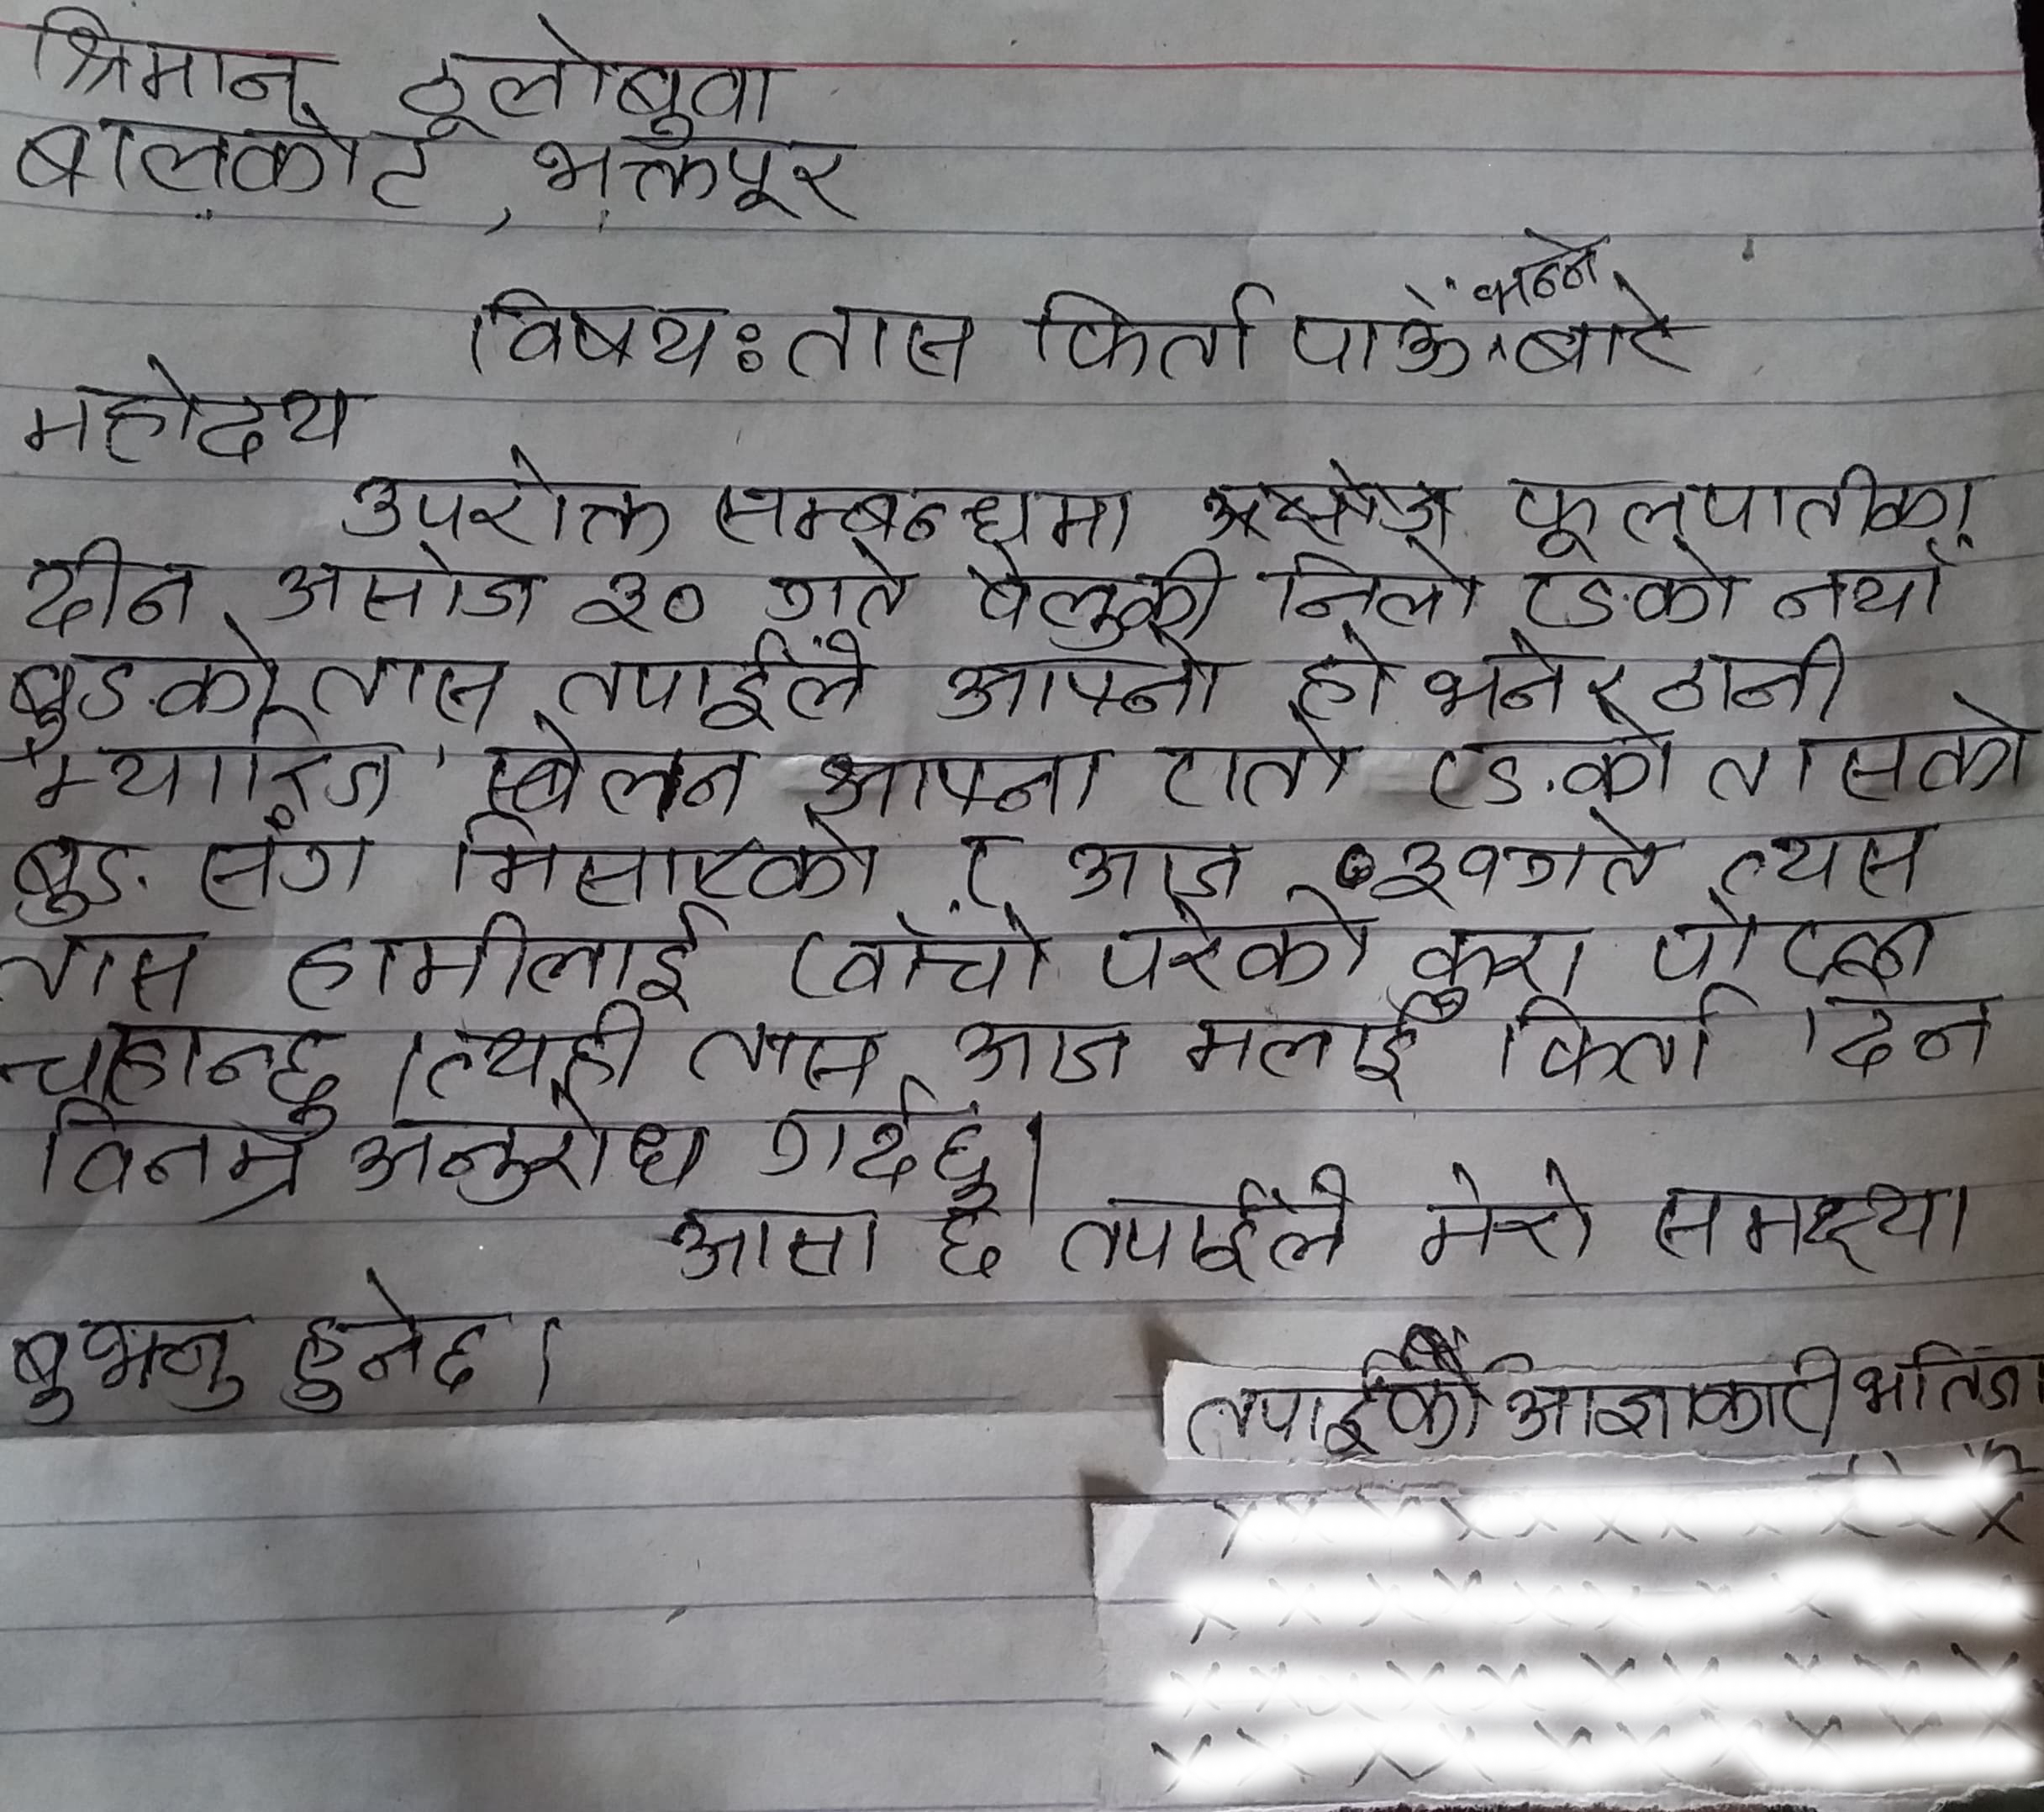 श्रिमान् ठूलोबुवा
बालकोट, भक्तपूर
विषय: तास फिर्ता पाऊँ भन्ने बारे
महोदय
उपरोक्त सम्बन्धमा फूलपातीका
दीन असोज ३० गते बेलुकी निलो रङको नयाँ
बुङको तास तपाईंले आफ्नो हो भनेर ठानी
'म्यारिज' खेलन आफ्ना रातो रङको तासको
बुङ सँग मिसाएको र आज ३१ गते त्यस
तास हामीलाई खाँचो परेको कुरा पोख्न
चाहान्छु। त्यही तास आज मलाई फिर्ता दिन
विनम्र अनुरोध गर्दछु।
आसा छ तपाईंले मेरो समस्या
बुझ्नु हुनेछ।
तपाईको आज्ञाकारी भतिजा